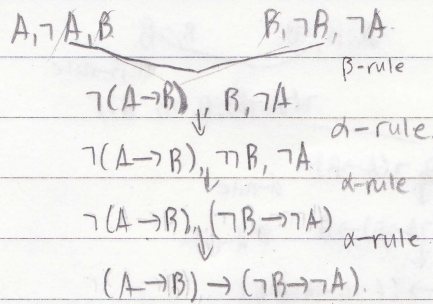 A, ¬A, B B, ¬B, ¬A
β-rule
¬(A→B), B, ¬A
α-rule
¬(A→B), ¬¬B, ¬A
α-rule
¬(A→B), (¬B→¬A)
α-rule
(A→B) → (¬B→¬A).